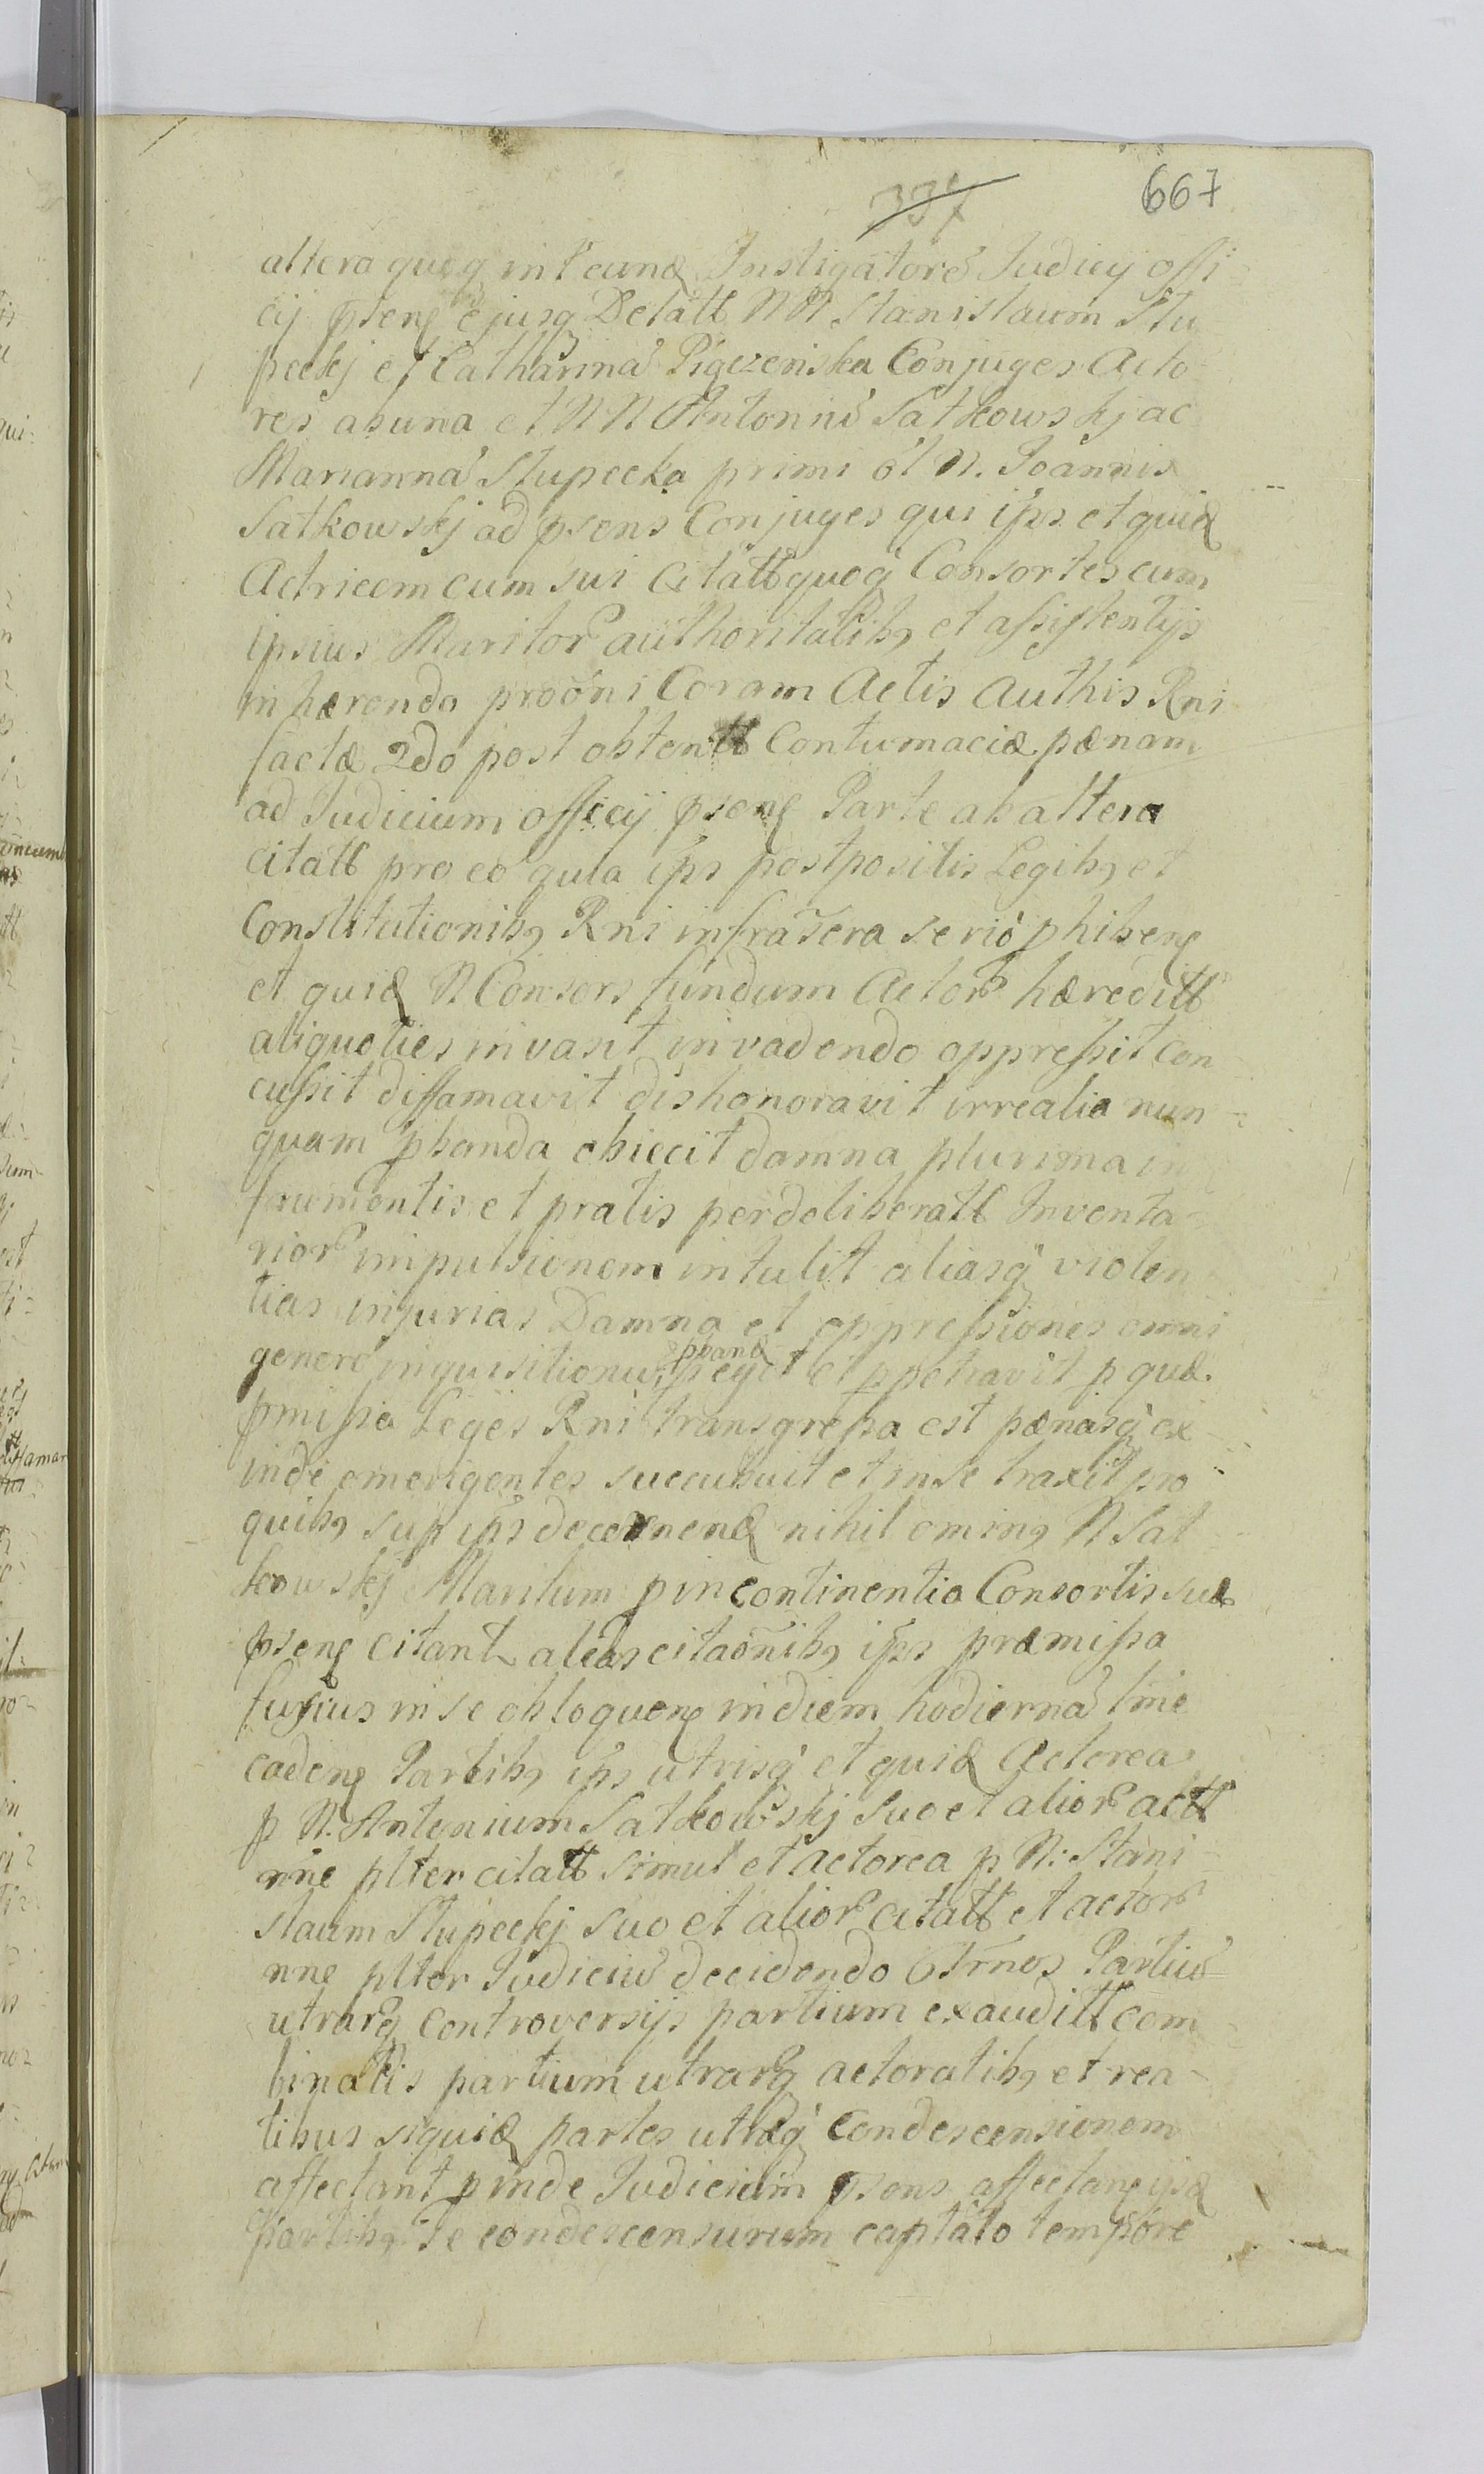 337
667
altera quoq int eund Instigatorē Judicy offi
cij psenꝭ ejusq Delatt NN Stanislaum Stu
peckj et Catharinā Pigczenska Conjuges Acto
res ab una et NN Antoniū Satkowskj ac
Mariannā Stupecka primi ol N. Joannis
Satkowskj ad psens Conjuges qui ips et quid
Actricem cum sui Citatt quoq Consortes cum
ipsius Maritor authoritatibꝫ et assistentijs
inhærendo proōni Coram Actis Authis Rni
factæ 2do post obtentt Contumaciæ pænam
ad Judicium officij psenꝭ Parte ab altera
citatt pro eo quia ips postpositis Legibꝫ et
Constitutionibꝫ Rni infrasera serio phibenꝭ
et quid N Consors fundum Actor hæreditt
aliquoties invasit invadendo oppressit con
cussit diffamavit dishonoravit irrealia nun
quam pbanda obiecit damna plurima in
frumentis et pratis per deliberatt Inventa
rior impulsionem intulit aliasq violen
tias injurias Damna et oppressiones omni
genere inquisitionū pband pegit et ppetravit p quæ
pmissa Leges Rni transgressa est pænasq ex
inde emerigentes succubuit et in se traxit pro
quibꝫ sup ips decernend nihil ominꝫ N Sat
kowskj Maritum p incontinentia Consortis suæ
psenꝭ citant alias citaōnibꝫ ips præmissa
fusius in se obloquenꝭ in diem hodiernā tnie
cadenꝭ Partibꝫ ips utrisq et quid Actorea
p N. Antonium Satkowskj suo et alior actt
nne plter citatt simul et actorea p N: Stani
slaum Stupeckj suo et alior citatt et actor
nne plter Judiciū decidendo Ctrnos Partiū
utrarq Controversijs partium exauditt com
binatis partium utrarq actoratibꝫ et rea
tibus siquid partes utræq Condescensionem
affectant pinde Judicium psens affectanꝭ ijsd
Partibꝫ se condescensurum captato tempore